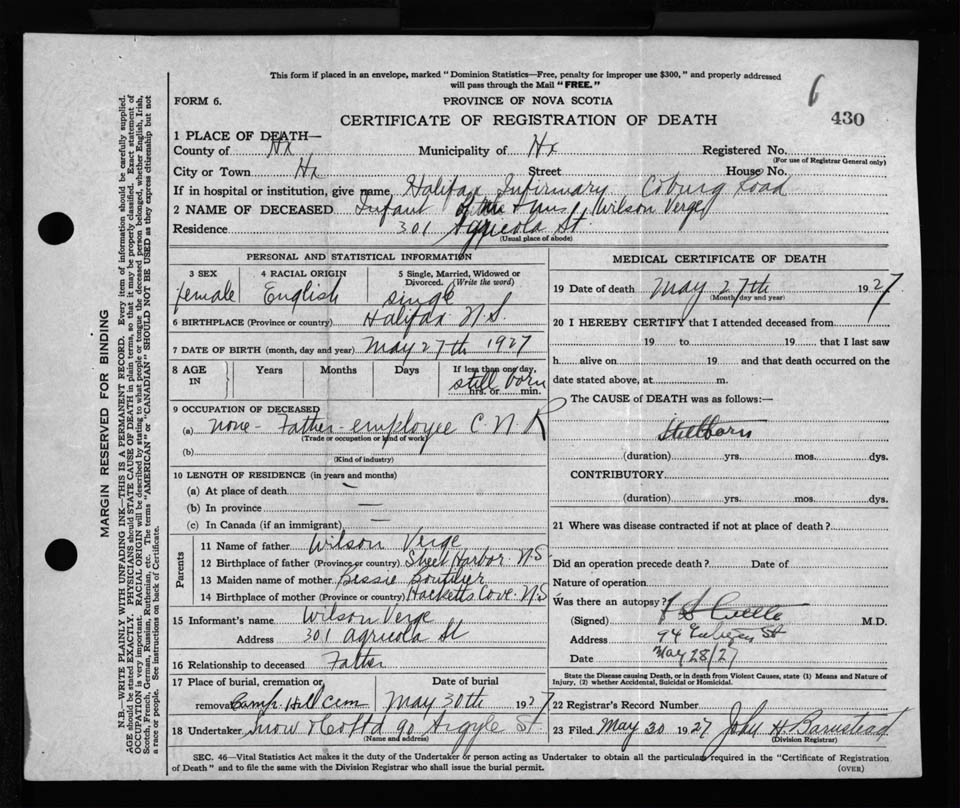 This form if placed in an envelope, marked "Dominion Statistics—Free, penalty for improper use $300," and properly addressed
will pass through the Mail "FREE."
6
FORM 6.
PROVINCE OF NOVA SCOTIA
CERTIFICATE OF REGISTRATION OF DEATH
430
1 PLACE OF DEATH—
County of Hx Municipality of Hx Registered No.
(For use of Registrar General only)
City or Town Hx Street House No.
If in hospital or institution, give name Halifax Infirmary Coburg Road
2 NAME OF DECEASED Infant of Mr & Mrs Wilson Verge
Residence 301 Agricola St.
(Usual place of abode)
PERSONAL AND STATISTICAL INFORMATION
3 SEX 4 RACIAL ORIGIN 5 Single, Married, Widowed or
Divorced. (Write the word)
female English single
6 BIRTHPLACE (Province or country) Halifax N.S.
7 DATE OF BIRTH (month, day and year) May 27th 1927
8 AGE IN Years Months Days If less than one day,
still born
hrs. or min.
9 OCCUPATION OF DECEASED
(a) none - Father - employee C.N.R
(Trade or occupation or kind of work)
(b)
(Kind of industry)
10 LENGTH OF RESIDENCE (in years and months)
(a) At place of death —
(b) In province —
(c) In Canada (if an immigrant) —
Parents
11 Name of father Wilson Verge
12 Birthplace of father (Province or country) Sheet Harbor N.S.
13 Maiden name of mother Bessie Boutilier
14 Birthplace of mother (Province or country) Hacketts Cove. N.S
15 Informant's name Wilson Verge
Address 301 Agricola St
16 Relationship to deceased Father
17 Place of burial, cremation or Date of burial
removal Camp. Hill Cem May 30th 1927
18 Undertaker Snow & Co Ltd 90 Argyle St.
(Name and address)
MEDICAL CERTIFICATE OF DEATH
19 Date of death May 27th 1927
(Month, day and year)
20 I HEREBY CERTIFY that I attended deceased from
19 to 19 that I last saw
h alive on 19 and that death occurred on the
date stated above, at m.
The CAUSE of DEATH was as follows:—
Stillborn
(duration) yrs. mos. dys.
CONTRIBUTORY
(duration) yrs. mos. dys.
21 Where was disease contracted if not at place of death?
Did an operation precede death? Date of
Nature of operation
Was there an autopsy?
(Signed) M.D.
Address 94 St
Date May 28/27
State the Disease causing Death, or in death from Violent Causes, state (1) Means and Nature of
Injury, (2) whether Accidental, Suicidal or Homicidal.
22 Registrar's Record Number
23 Filed May 30 1927 John H. Barnstead
(Division Registrar)
SEC. 46—Vital Statistics Act makes it the duty of the Undertaker or person acting as Undertaker to obtain all the particulars required in the "Certificate of Registration
of Death" and to file the same with the Division Registrar who shall issue the burial permit.
(OVER)
MARGIN RESERVED FOR BINDING
N.B.—WRITE PLAINLY WITH UNFADING INK—THIS IS A PERMANENT RECORD. Every item of information should be carefully supplied.
AGE should be stated EXACTLY. PHYSICIANS should STATE CAUSE OF DEATH in plain terms, so that it may be properly classified. Exact statement of
OCCUPATION is very important. RACIAL ORIGIN will be described by stating to what people or tongue the deceased person belonged, whether English, Irish,
Scotch, French, German, Russian, Ruthenian, etc. The terms "AMERICAN" or "CANADIAN" SHOULD NOT BE USED as they express citizenship but not
a race or people. See instructions on back of Certificate.